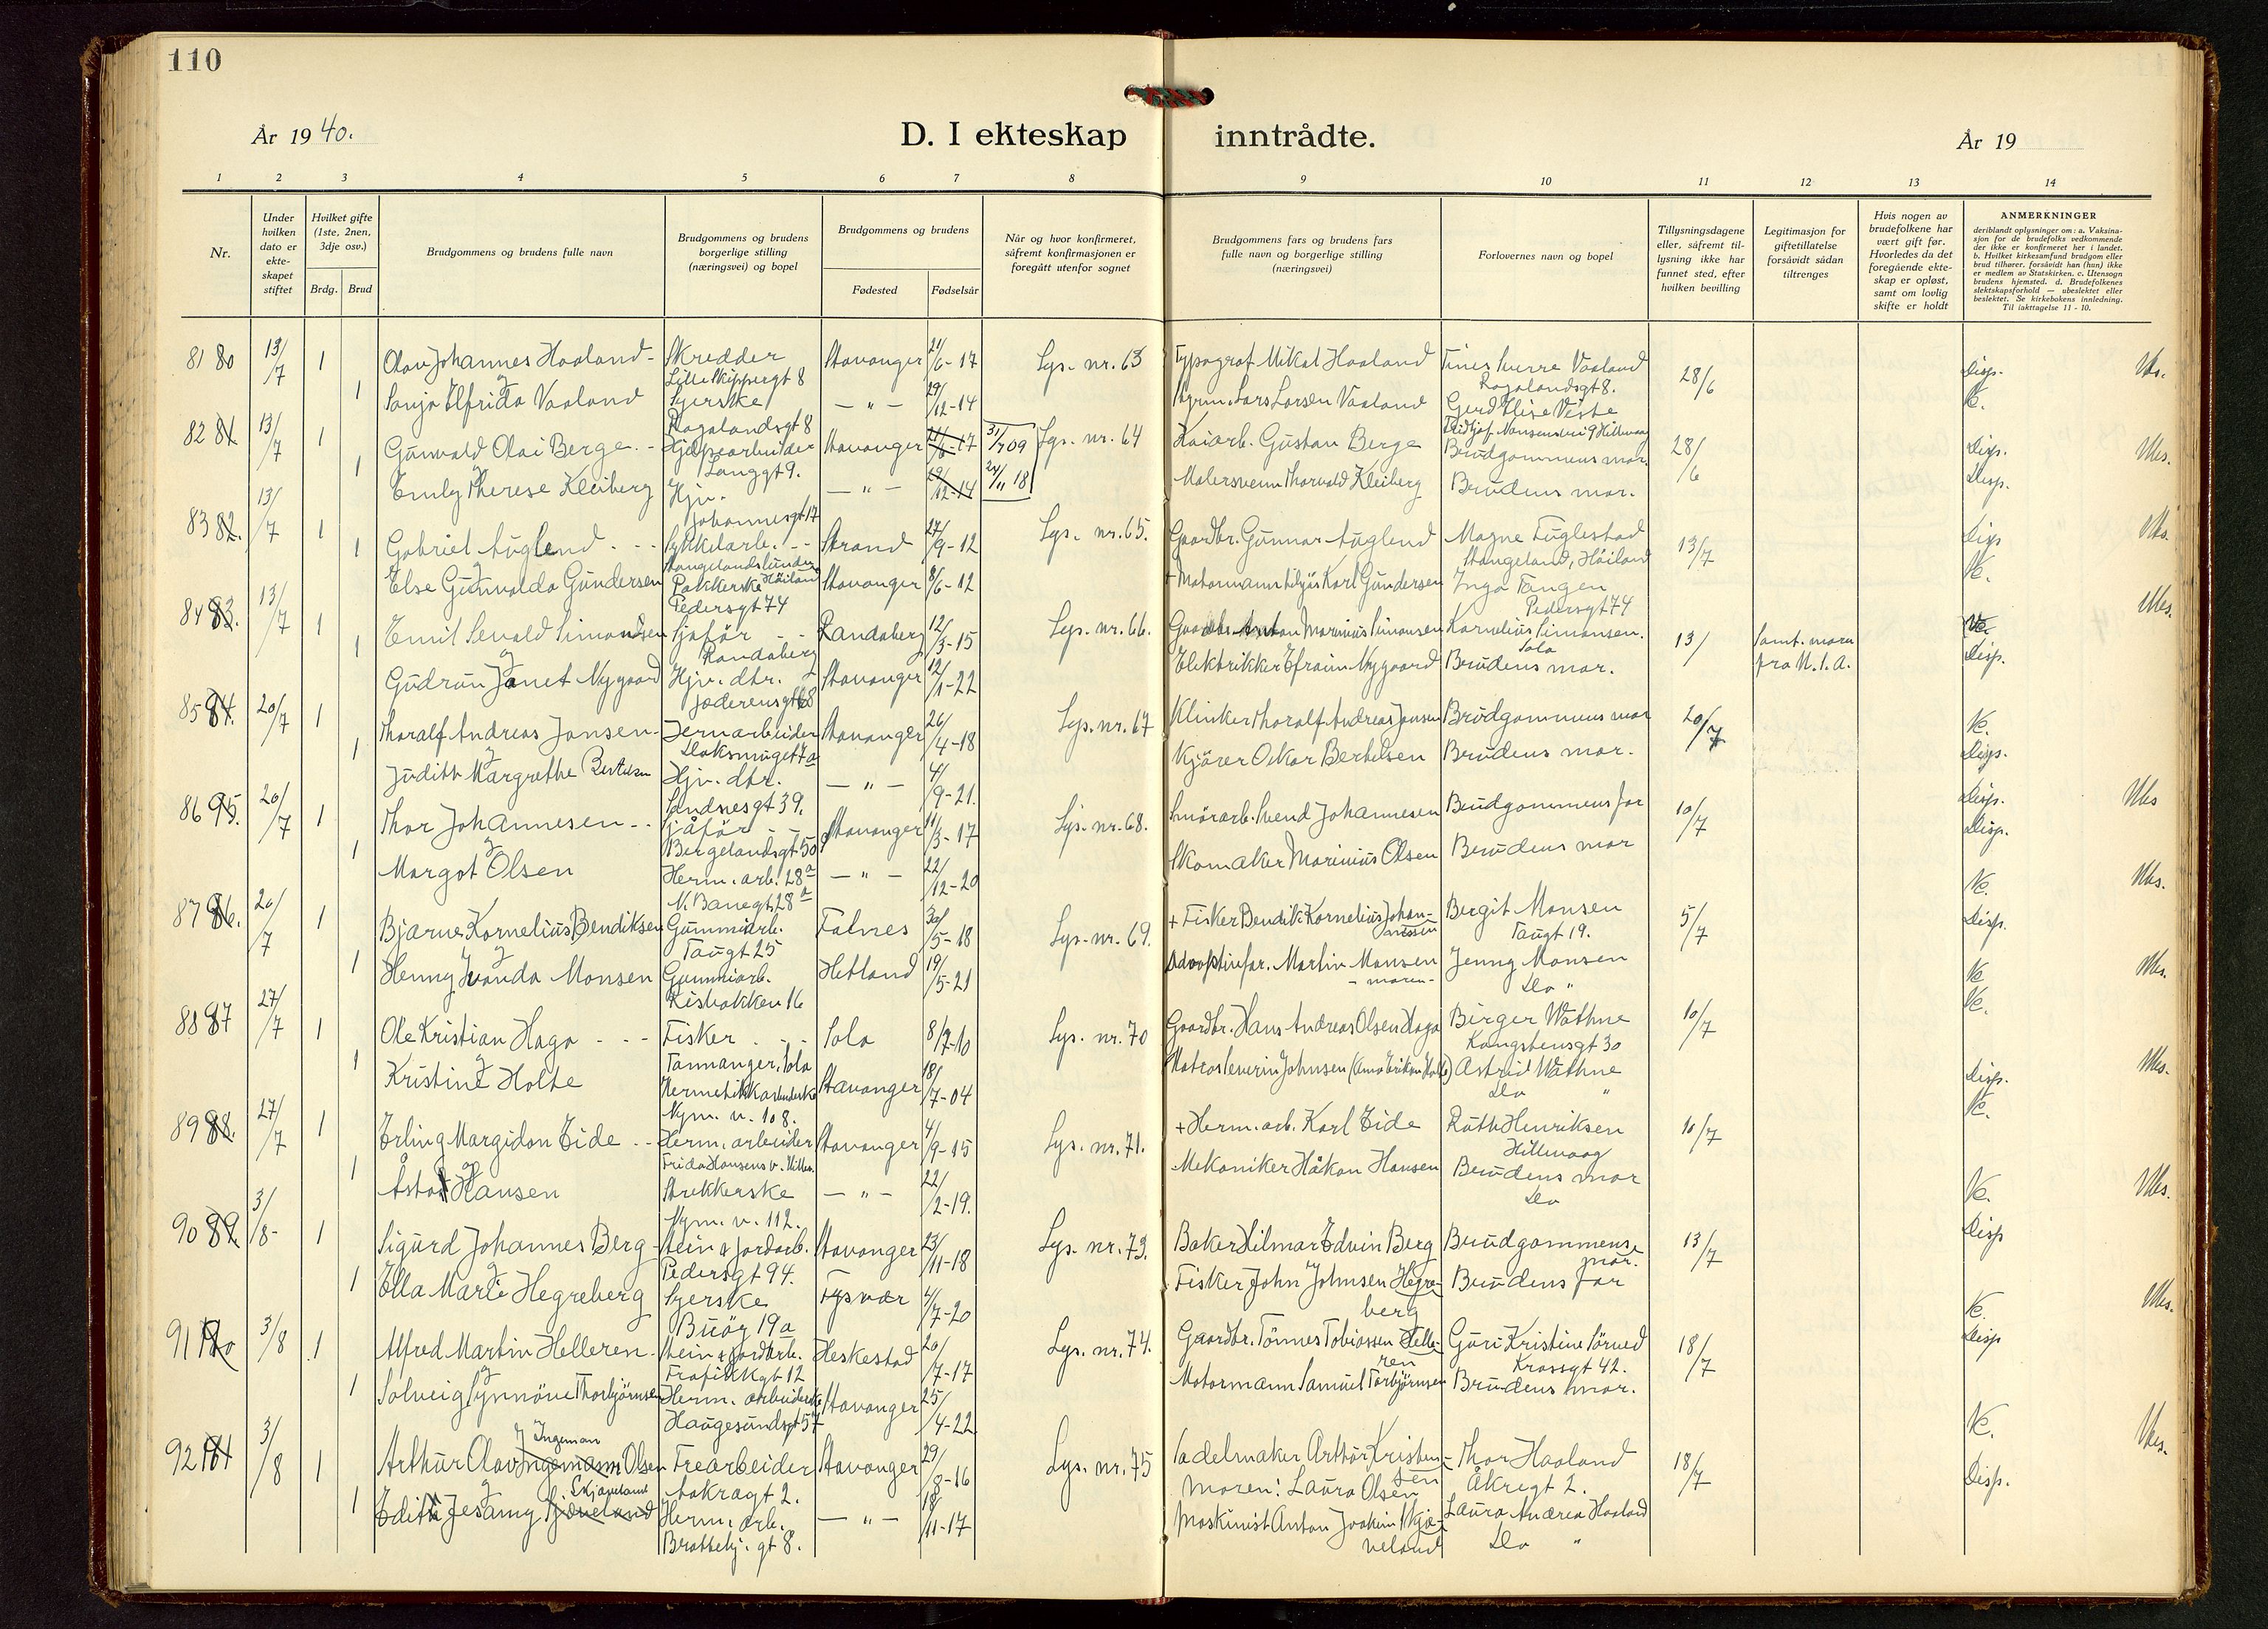 110
År 19 40.
D. I ekteskap inntrådte.
År 19
1 2 3 4 5 6 7 8 9 10 11 12 13 14
Nr.
Under hvilken dato er ekte-skapet stiftet
Hvilket gifte (1ste, 2nen, 3dje osv.)
Brdg. Brud
Brudgommens og brudens fulle navn
Brudgommens og brudens borgerlige stilling (næringsvei) og bopel
Brudgommens og brudens
Fødested Fødselsår
Når og hvor konfirmeret, såfremt konfirmasjonen er foregått utenfor sognet
Brudgommens fars og brudens fars fulle navn og borgerlige stilling (næringsvei)
Forlovernes navn og bopel
Tillysningsdagene eller, såfremt til-lysning ikke har funnet sted, efter hvilken bevilling
Legitimasjon for giftetillatelse forsåvidt sådan tiltrenges
Hvis nogen av brudefolkene har vært gift før. Hvorledes da det foregående ekte-skap er opløst, samt om lovlig skifte er holdt
ANMERKNINGER
deriblandt oplysninger om: a. Vaksina-sjon for de brudefolks vedkommende der ikke er konfirmeret her i landet. b. Hvilket kirkesamfund brudgom eller brud tilhører, forsåvidt han (hun) ikke er medlem av Statskirken. c. Utensogn brudens hjemsted. d. Brudefolkenes slektskapsforhold — ubeslektet eller beslektet. Se kirkebokens innledning. Til iakttagelse 11 - 10.
81 80 13/7 1 Olav Johannes Haaland - Skredder Stavanger 24/6-17 Lys. nr. 63 Typograf Mikal Haaland Tines Sverre Vaaland 28/6 Disp.
Lille Skippergt 8 Rogalandsgt 8.
1 Sonja Elfrida Vaaland Syerske — " — 29/12-14 Lars Larsen Vaaland Gerd Elise Viste
Rogalandsgt 8 Fridtjof Nansensvei 9 Hillevaag
82 81 13/7 1 Gunvald Olai Berge - Hjelpearbeider Stavanger 31/7 09 Lys. nr. 64 Kaiarb. Gustav Berge Brudgommens mor. 28/6 Disp.
Langgt 9.
1 Emly Therese Kleiberg Hjv. — " — 12-14 24/11 18 Malersvenn Thorvald Kleiberg Brudens mor. Disp.
Johannesgt 17
83 82. 13/7 1 Gabriel Auglend Sykkelarb. Strand 27/9-12 Lys. nr. 65. Gaardbr. Gunnar Auglend Magne Fuglestad 13/7 Disp
Stangelandslunden Høiland Stangeland, Høiland
1 Else Gunvalda Gundersen Pakkerske Stavanger 8/6-12 Karl Gundersen Inga Tangen
Pedersgt 74 Pedersgt 74
84 83. 13/7 1 Emil Sevald Simonsen Sjafør Randaberg 12/3-15 Lys. nr. 66. Gaardbr. Anton Marinius Simonsen Kornelius Simonsen. 13/ Samt. moren
Randaberg Sola fra U.S.A.
1 Gudrun Janet Nygaard Hjv. dtr. Stavanger 12/1-22 Elektrikker Efraim Nygaard Brudens mor. Disp.
Jæderensgt 68
85 84. 20/7 1 Thoralf Andreas Jansen - Jernarbeider Stavanger 26/4-18 Lys. nr. 67 Klinker Thoralf Andreas Jansen Brudgommens mor 20/7
1 Judith Margrethe Bertelsen Hjv. dtr. — " — 4/9-21. Kjører Oskar Bertelsen Brudens mor. Disp.
Sandnesgt 39.
86 95. 20/7 1 Thor Johannesen Sjåfør Stavanger 11/3-17 Lys. nr. 68. Smørarb. Svend Johannesen Brudgommens far 10/7 Disp.
Bergelandsgt 50
1 Margot Olsen Herm. arb. 28a — " — 22/12-20 Skomaker Marinius Olsen Brudens mor Disp.
N. Banegt 28a
87 86. 20/7 1 Bjarne Kornelius Bendiksen Gummiarb. Falnes 30/5-18 Lys. nr. 69. + Fisker Bendik Kornelius Johan-nessen Bergit Monsen 5/7
Taugt 25 Taugt 19.
1 Henny Wanda Monsen Gummiarb. Hetland 19/5-21 Adoptivfar. Martin Monsen Jenny Monsen Disp.
Risbakken 16 - moren - Do "
88 87 27/7 1 Ole Kristian Haga Fisker Sola 8/7-10 Lys. nr. 70 Gaardbr. Hans Andreas Olsen Haga Birger Wathne 10/7
Tannanger, Sola Kongstensgt 30
1 Kristine Holte Hermetikkarbeiderske Stavanger 18/7-04 Matros Severin Johnsen Astrid Wathne
Nym. v. 108. Do "
89 88. 27/7 1 Erling Margidon Eide Herm. arbeider Stavanger 4/9-15 Lys. nr. 71. + Herm. arb. Karl Eide Ruth Henriksen 10/7 Disp.
Frida Hansens v. Hillev. Hillevaag
1 Åsta Hansen Strekkerske — " — 22/2-19. Mekaniker Håkon Hansen Brudens mor
Nym. v. 112. Do
90 89 3/8- 1 Sigurd Johannes Berg - Stein & Jordarb. Stavanger 23/11-18 Lys. nr. 73. Baker Hilmar Edvin Berg Brudgommens mor. 13/7
Pedersgt 94.
1 Ella Marie Hegreberg Syerske Tysvær 4/7-20 Fisker John Johnsen Hegre-berg Brudens far Disp
Buøy 19a
91 90 3/8 1 Alfred Martin Helleren - Stein & Jordarb. Heskestad 20/7-17 Lys. nr. 74. Gaardbr. Tønnes Tobiassen Helle-ren Guri Kristine Sörved 18/7
Trafikkgt 12 Krossgt 42.
1 Solveig Synnöve Thorbjörnsen Herm. arbeiderske Stavanger 25/4-22 Motormann Samuel Torbjörnsen Brudens mor. Disp
Haugesundsgt 57
92 91 3/8 1 Arthur Olav Ingeman Ingemann Olsen Trearbeider Stavanger 29/8-16 Lys. nr. 75 Sadelmaker Arthur Kristen-sen Thor Haaland 18/7
Aakragt 2. Moren: Laura Olsen Åkregt 2.
1 Edith Jesamy Skjæveland Herm. arb. — " — 18/11-17 Maskinist Anton Joakim Skjæ-veland Laura Andrea Haaland Disp.
Brattebj. gt 8. Do "